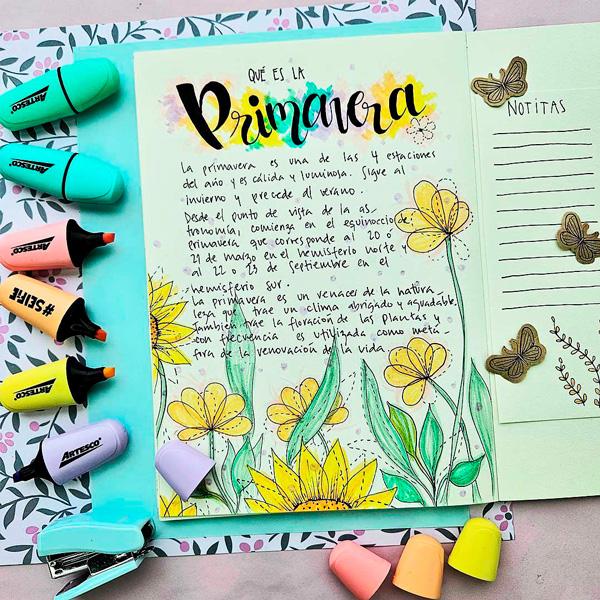 QUÉ ES LA
Primavera
La primavera es una de las 4 estaciones
del año y es cálida y luminosa. Sigue al
invierno y precede al verano.
Desde el punto de vista de la as_
tronomía, comienza en el equinoccio de
primavera que corresponde al 20 o
21 de marzo en el hemisferio norte y
al 22 o 23 de Septiembre en el
hemisferio sur.
La primavera es un renacer de la natura_
leza que trae un clima abrigado y agradable.
También trae la floración de las plantas y
con frecuencia es utilizada como metá
fora de la renovación de la vida
NOTITAS
ARTESCO
ARTESCO
ARTESCO
#SELFIE
ARTESCO
ARTESCO